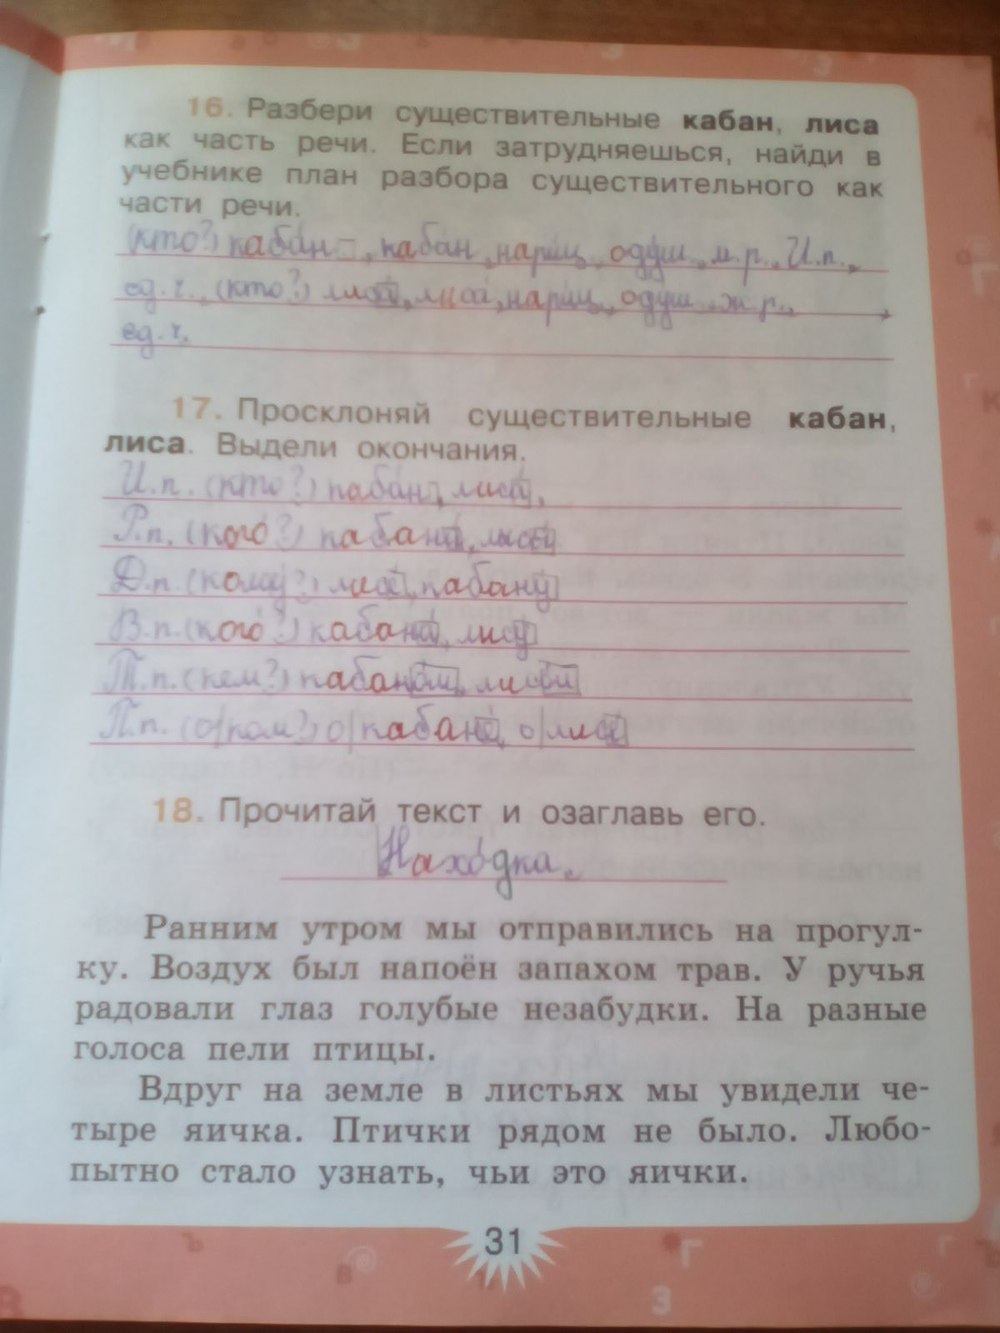 16. Разбери существительные кабан, лиса
как часть речи. Если затрудняешься, найди в
учебнике план разбора существительного как
части речи.
(кто?) кабан, кабан, нариц., одуш., м.р., И.п.,
ед.ч., (кто?) лиса, лиса, нариц., одуш. ж.р.,
ед.ч.
17. Просклоняй существительные кабан,
лиса. Выдели окончания.
И.п. (кто?) кабан, лиса,
Р.п. (кого?) кабана, лисы
Д.п. (кому?) лисе, кабану
В.п. (кого?) кабана, лису
Т.п. (кем?) кабаном, лисой
П.п. (о ком?) о кабане, о лисе
18. Прочитай текст и озаглавь его.
Находка.
Ранним утром мы отправились на прогул-
ку. Воздух был напоён запахом трав. У ручья
радовали глаз голубые незабудки. На разные
голоса пели птицы.
Вдруг на земле в листьях мы увидели че-
тыре яичка. Птички рядом не было. Любо-
пытно стало узнать, чьи это яички.
31